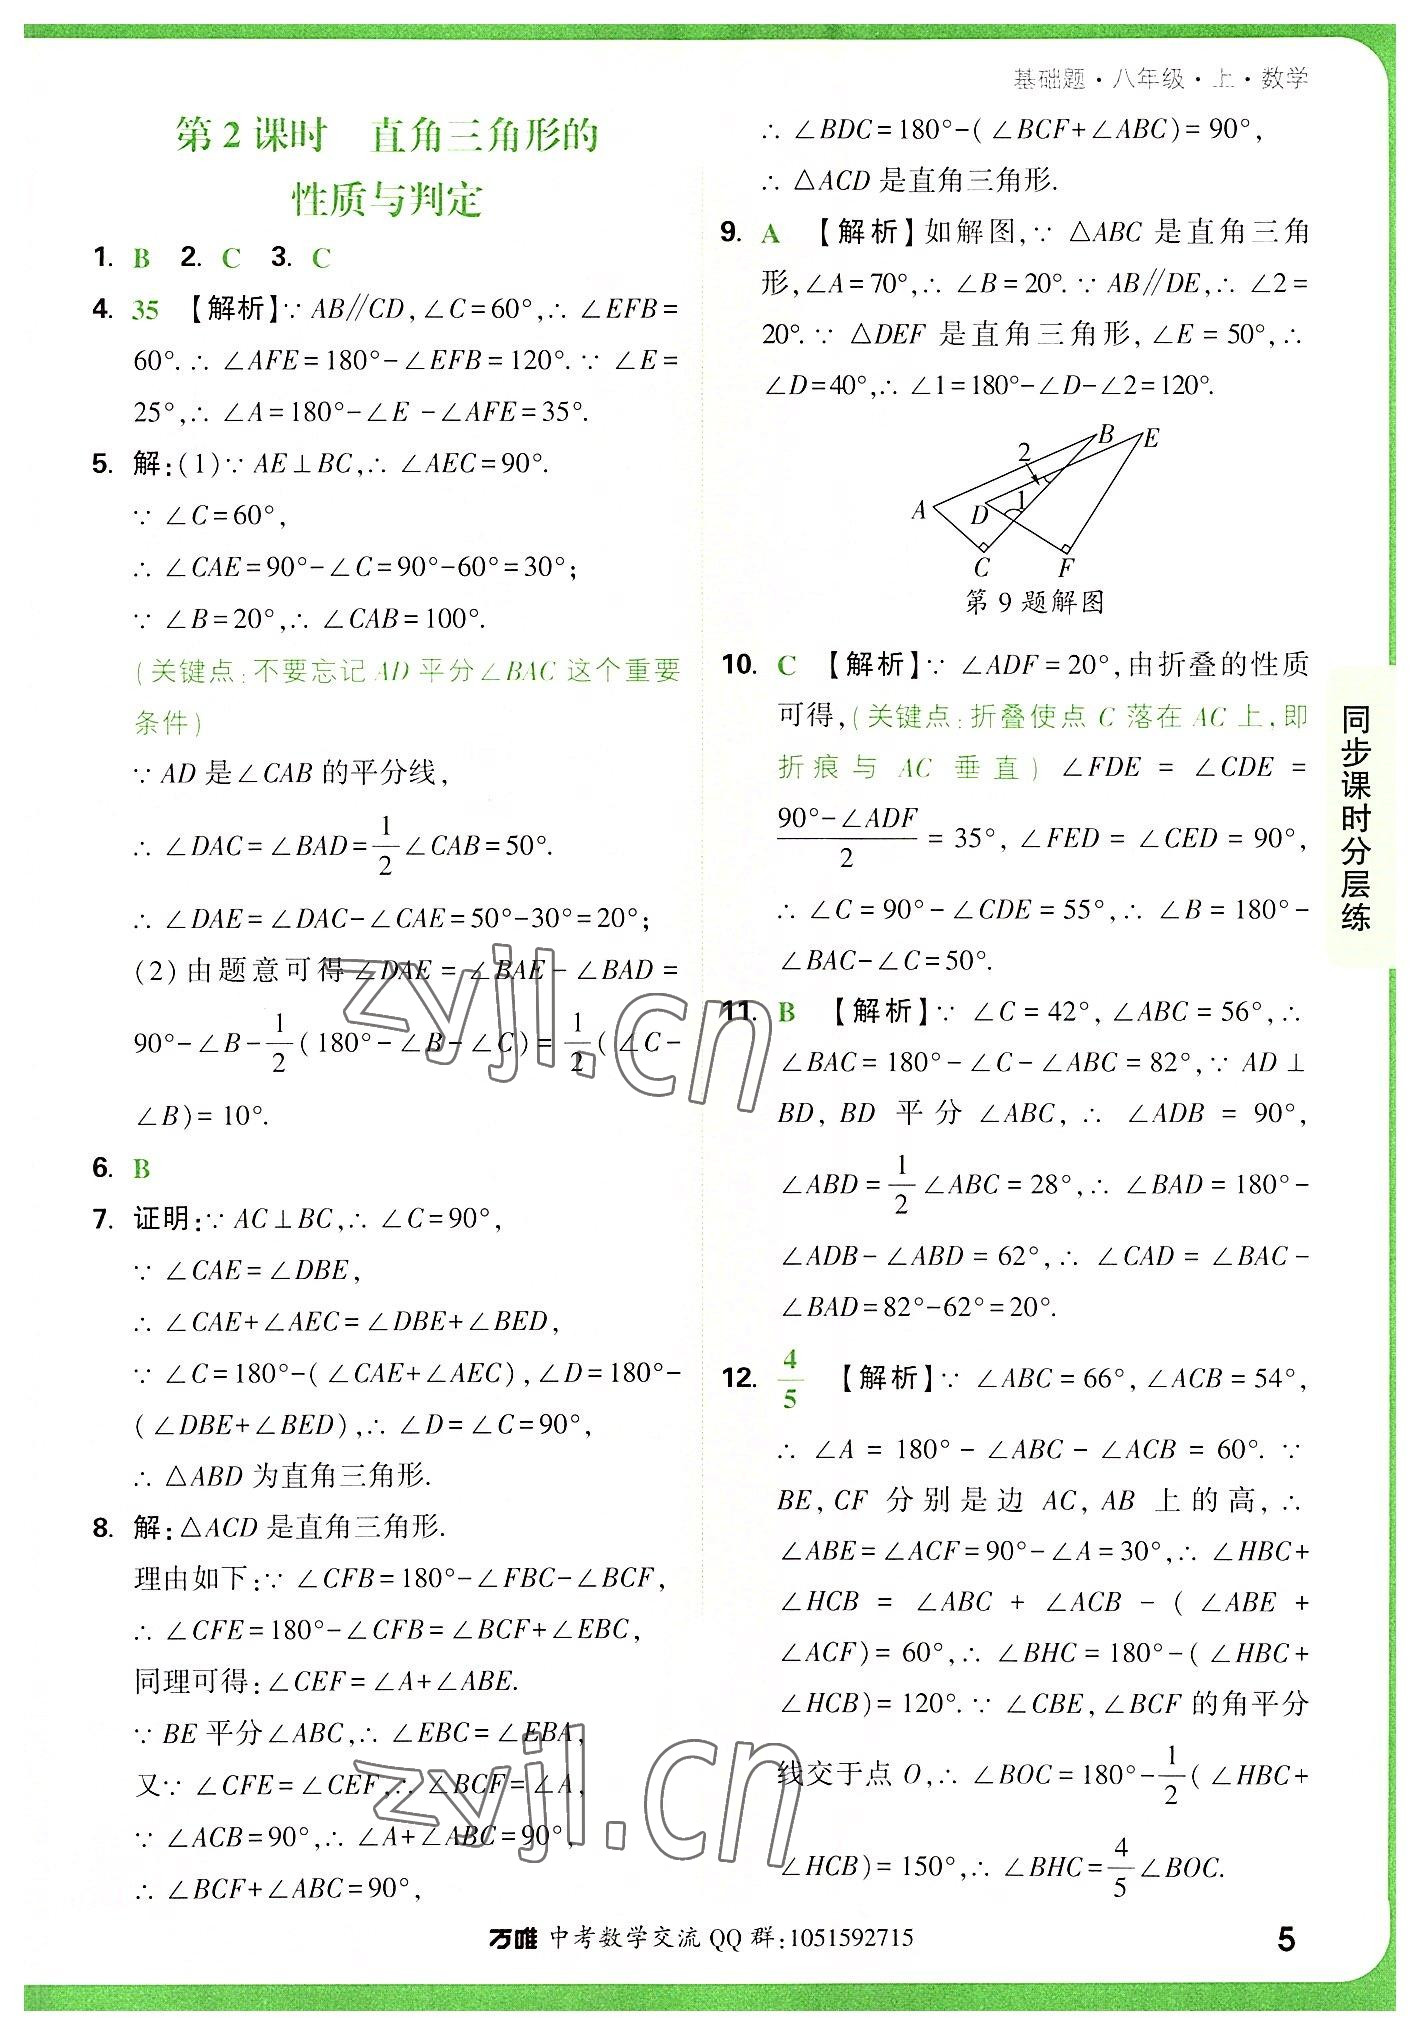 基础题·八年级·上·数学
第2课时 直角三角形的
性质与判定
1. B 2. C 3. C
4. 35 【解析】∵ AB∥CD,∠C=60°,∴ ∠EFB=
60°.∴ ∠AFE=180°-∠EFB=120°.∵ ∠E=
25°,∴ ∠A=180°-∠E-∠AFE=35°.
5. 解:(1)∵ AE⊥BC,∴ ∠AEC=90°.
∵ ∠C=60°,
∴ ∠CAE=90°-∠C=90°-60°=30°;
∵ ∠B=20°,∴ ∠CAB=100°.
(关键点:不要忘记AD平分∠BAC这个重要
条件)
∵ AD是∠CAB的平分线,
∴ ∠DAC=∠BAD=1/2∠CAB=50°.
∴ ∠DAE=∠DAC-∠CAE=50°-30°=20°;
(2)由题意可得∠DAE=∠BAE-∠BAD=
90°-∠B-1/2(180°-∠B-∠C)=1/2(∠C-
∠B)=10°.
6. B
7. 证明:∵ AC⊥BC,∴ ∠C=90°,
∵ ∠CAE=∠DBE,
∴ ∠CAE+∠AEC=∠DBE+∠BED,
∵ ∠C=180°-(∠CAE+∠AEC),∠D=180°-
(∠DBE+∠BED),∴ ∠D=∠C=90°,
∴ △ABD为直角三角形.
8. 解:△ACD是直角三角形.
理由如下:∵ ∠CFB=180°-∠FBC-∠BCF,
∴ ∠CFE=180°-∠CFB=∠BCF+∠EBC,
同理可得:∠CEF=∠A+∠ABE.
∵ BE平分∠ABC,∴ ∠EBC=∠EBA,
又∵ ∠CFE=∠CEF,∴ ∠BCF=∠A,
∵ ∠ACB=90°,∴ ∠A+∠ABC=90°,
∴ ∠BCF+∠ABC=90°,
∴ ∠BDC=180°-(∠BCF+∠ABC)=90°,
∴ △ACD是直角三角形.
9. A 【解析】如解图,∵ △ABC是直角三角
形,∠A=70°,∴ ∠B=20°.∵ AB∥DE,∴ ∠2=
20°.∵ △DEF是直角三角形,∠E=50°,∴
∠D=40°,∴ ∠1=180°-∠D-∠2=120°.
B E
2
A D 1
C F
第9题解图
10. C 【解析】∵ ∠ADF=20°,由折叠的性质
可得,(关键点:折叠使点C落在AC上,即
折痕与AC垂直)∠FDE=∠CDE=
(90°-∠ADF)/2=35°,∠FED=∠CED=90°,
∴ ∠C=90°-∠CDE=55°,∴ ∠B=180°-
∠BAC-∠C=50°.
11. B 【解析】∵ ∠C=42°,∠ABC=56°,∴
∠BAC=180°-∠C-∠ABC=82°,∵ AD⊥
BD,BD平分∠ABC,∴ ∠ADB=90°,
∠ABD=1/2∠ABC=28°,∴ ∠BAD=180°-
∠ADB-∠ABD=62°,∴ ∠CAD=∠BAC-
∠BAD=82°-62°=20°.
12. 4/5 【解析】∵ ∠ABC=66°,∠ACB=54°,
∴ ∠A=180°-∠ABC-∠ACB=60°.∵
BE,CF分别是边AC,AB上的高,∴
∠ABE=∠ACF=90°-∠A=30°,∴ ∠HBC+
∠HCB=∠ABC+∠ACB-(∠ABE+
∠ACF)=60°,∴ ∠BHC=180°-(∠HBC+
∠HCB)=120°.∵ ∠CBE,∠BCF的角平分
线交于点O,∴ ∠BOC=180°-1/2(∠HBC+
∠HCB)=150°,∴ ∠BHC=4/5∠BOC.
同步课时分层练
zyjl.cn
zyjl.cn
万唯 中考数学交流QQ群:1051592715
5